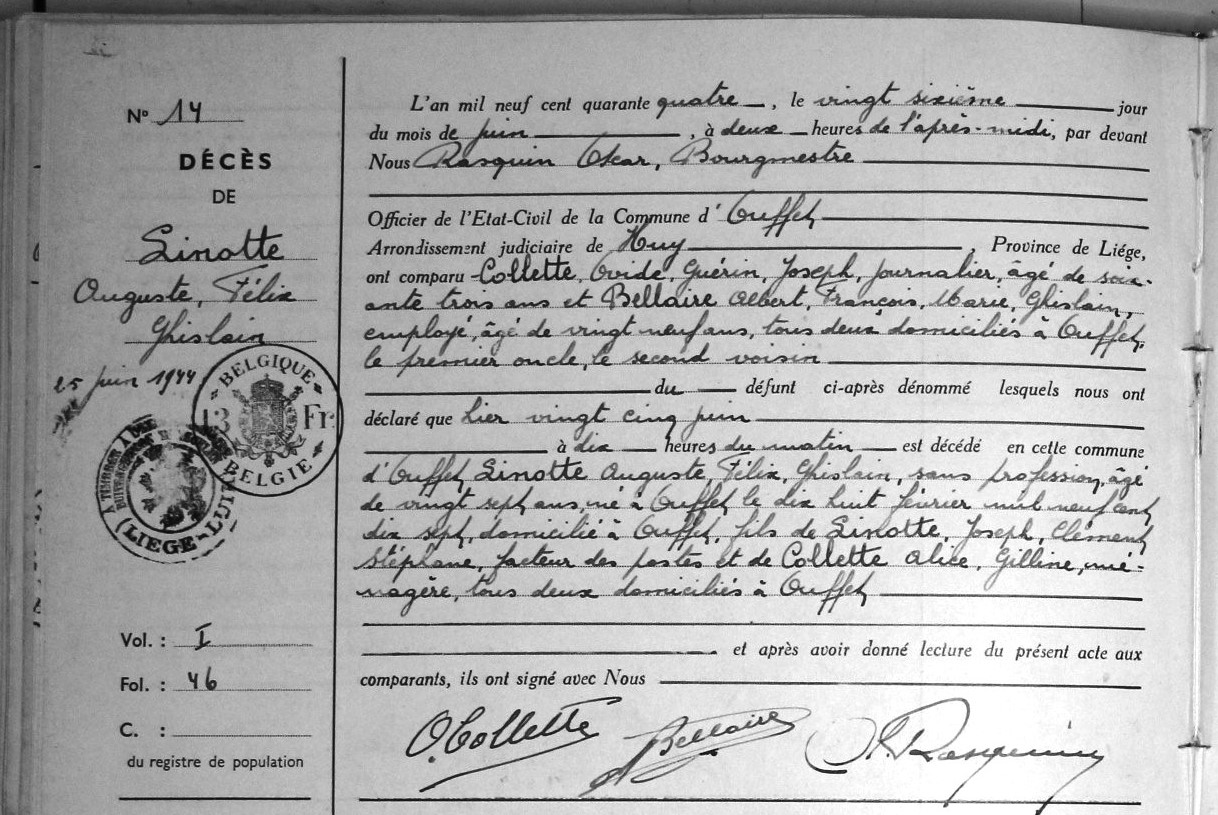 N° 14
DÉCÈS
DE
Linotte
Auguste, Félix
Ghislain
25 juin 1944
BELGIQUE
13 Fr.
BELGIE
(LIEGE-LUIK)
Vol. : I
Fol. : 46
C. :
du registre de population
L'an mil neuf cent quarante quatre, le vingt sixième jour
du mois de juin, à deux heures de l'après-midi, par devant
Nous Rasquin Oscar, Bourgmestre
Officier de l'Etat-Civil de la Commune d' Ouffet
Arrondissement judiciaire de Huy, Province de Liége,
ont comparu Collette, Ovide, Guérin, Joseph, journalier, âgé de soix-
ante trois ans et Bellaire Albert, François, Marie, Ghislain,
employé, âgé de vingt neuf ans, tous deux domiciliés à Ouffet,
le premier oncle, le second voisin
du défunt ci-après dénommé lesquels nous ont
déclaré que hier vingt cinq juin
à dix heures du matin est décédé en cette commune
d'Ouffet, Linotte Auguste, Félix, Ghislain, sans profession, âgé
de vingt sept ans, né à Ouffet le dix huit février mil neuf cent
dix sept, domicilié à Ouffet, fils de Linotte, Joseph, Clément
Stéphane, facteur des postes et de Collette Alice, Gilline, mé-
nagère, tous deux domiciliés à Ouffet
et après avoir donné lecture du présent acte aux
comparants, ils ont signé avec Nous
O. Collette Bellaire O. Rasquin